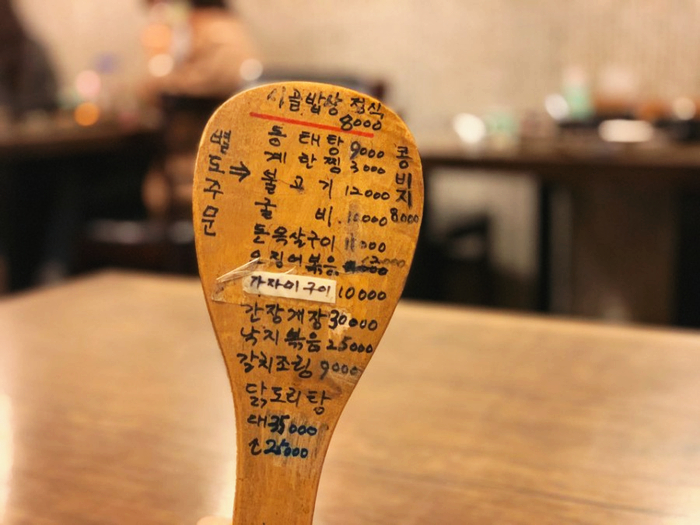 시골밥상 정식
8000
별도주문
⇒
동태탕 9000
계란찜 3000
불고기 12000
굴비 10000
돈육살구이 11000
오징어볶음
가자미구이 10000
간장게장 30000
낙지볶음 25000
갈치조림 9000
닭도리탕
대 35000
소 25000
콩비지
8000